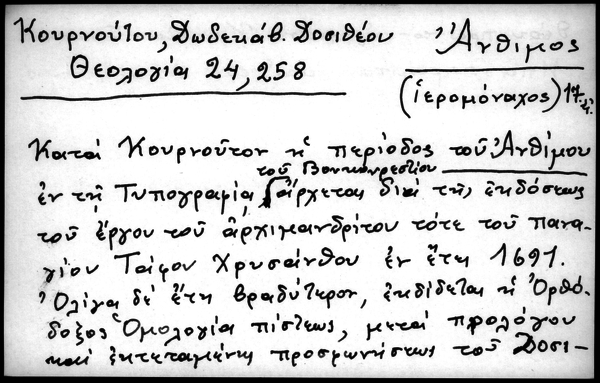 Κουρνούτου, Δωδεκάβ. Δοσιθέου
Θεολογία 24, 258
Ἄνθιμος
(ἱερομόναχος) 17.
Κατά Κουρνοῦτον ἡ περίοδος τοῦ Ἀνθίμου
τοῦ Βουκουρεστίου
ἐν τῇ Τυπογραφίᾳ, ἄρχεται διά τῆς ἐκδόσεως
τοῦ ἔργου τοῦ ἀρχιμανδρίτου τότε τοῦ Πανα-
γίου Τάφου Χρυσάνθου ἐν ἔτει 1691.
Ὀλίγα δέ ἔτη βραδύτερον, ἐκδίδεται ἡ Ὀρθό-
δοξος Ὁμολογία πίστεως, μετά προλόγου
καί ἐκτεταμένης προσφωνήσεως τοῦ Δοσι-